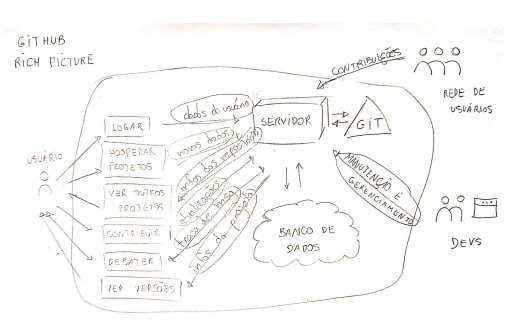 GITHUB
RICH PICTURE
CONTRIBUIÇÕES
REDE DE
USUÁRIOS
USUÁRIO
LOGAR
HOSPEDAR
PROJETOS
VER OUTROS
PROJETOS
CONTRIBUIR
DEBATER
VER VERSÕES
dados do usuário
novos dados
infos dos repositórios
atualizações
troca de msg
infos do projeto
SERVIDOR
GIT
MANUTENÇÃO E
GERENCIAMENTO
BANCO DE
DADOS
DEVS